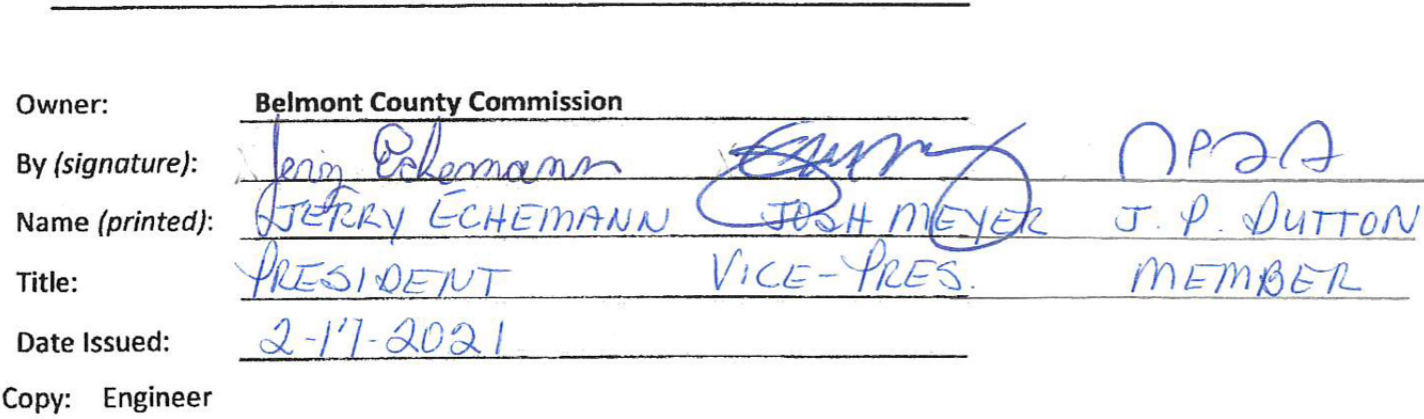 Owner: Belmont County Commission
By (signature): Jerry Echemann
Name (printed): JERRY ECHEMANN JOSH MEYER J. P. DUTTON
Title: PRESIDENT VICE-PRES. MEMBER
Date Issued: 2-17-2021
Copy: Engineer